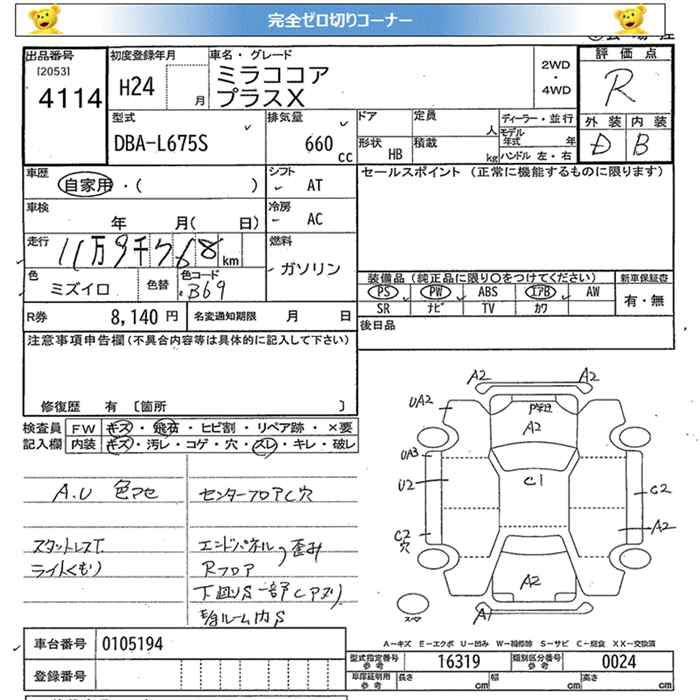 完全ゼロ切りコーナー
出品番号
[2053]
4114
初度登録年月
H24
月
車名・グレード
ミラココア
プラスX
2WD
・
4WD
評価点
R
外装 内装
D B
型式
DBA-L675S
排気量
660
cc
ドア
形状
HB
定員
人
積載
kg
ディーラー・並行
モデル年式 年
ハンドル 左・右
車歴
自家用・( )
シフト
AT
セールスポイント (正常に機能するものに限ります)
車検
年 月( 日)
冷房
AC
走行
11万9千768 km
燃料
ガソリン
色
ミズイロ
色替
色コード
B69
装備品 (純正品に限り○をつけてください)
新車保証書
PS PW ABS エアB AW
SR ナビ TV カワ
有・無
R券
8,140 円
名変通知期限 月 日
後日品
注意事項申告欄(不具合内容等は具体的に記入して下さい)
修復歴 有 [箇所 ]
検査員 FW キズ・飛石・ヒビ割・リペア跡・×要
記入欄 内装 キズ・汚レ・コゲ・穴・スレ・キレ・破レ
A.U 色アセ
センターフロアC穴
スタットレスT.
エンドパネル、歪み
ライトくもり
Rフロア
下廻りS 一部Cアブリ
ルーム内S
A2 A2
UA2
A2
UA3
C1
U2
C2
C2
穴
A2
A2
A1
スーマ
A-キズ E-エクボ U-凹み W-補修跡 S-サビ C-腐食 XX-交換済
車台番号 0105194
型式指定番号
参考
16319
類別区分番号
参考
0024
登録番号
車庫証明用
参考
長さ cm
幅 cm
高さ cm